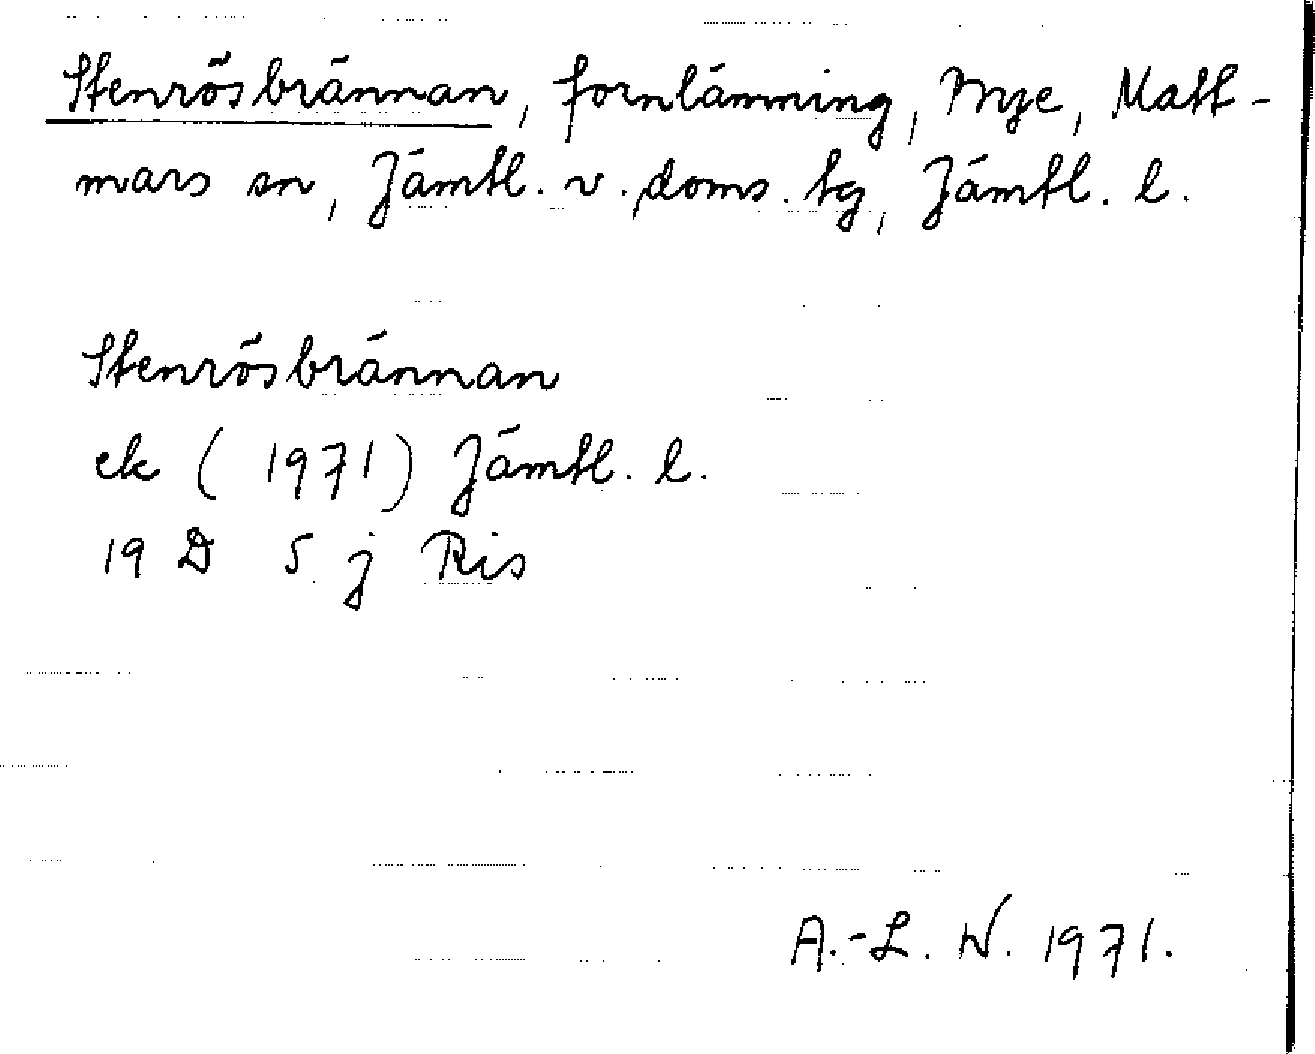 Stenrösbrännan, fornlämning, Mye, Matt-
mars sn, Jämtl. v. doms. tg, Jämtl. l.
Stenrösbrännan
ek (1971) Jämtl. l.
19 D 5 j Ris
A.-L. W. 1971.